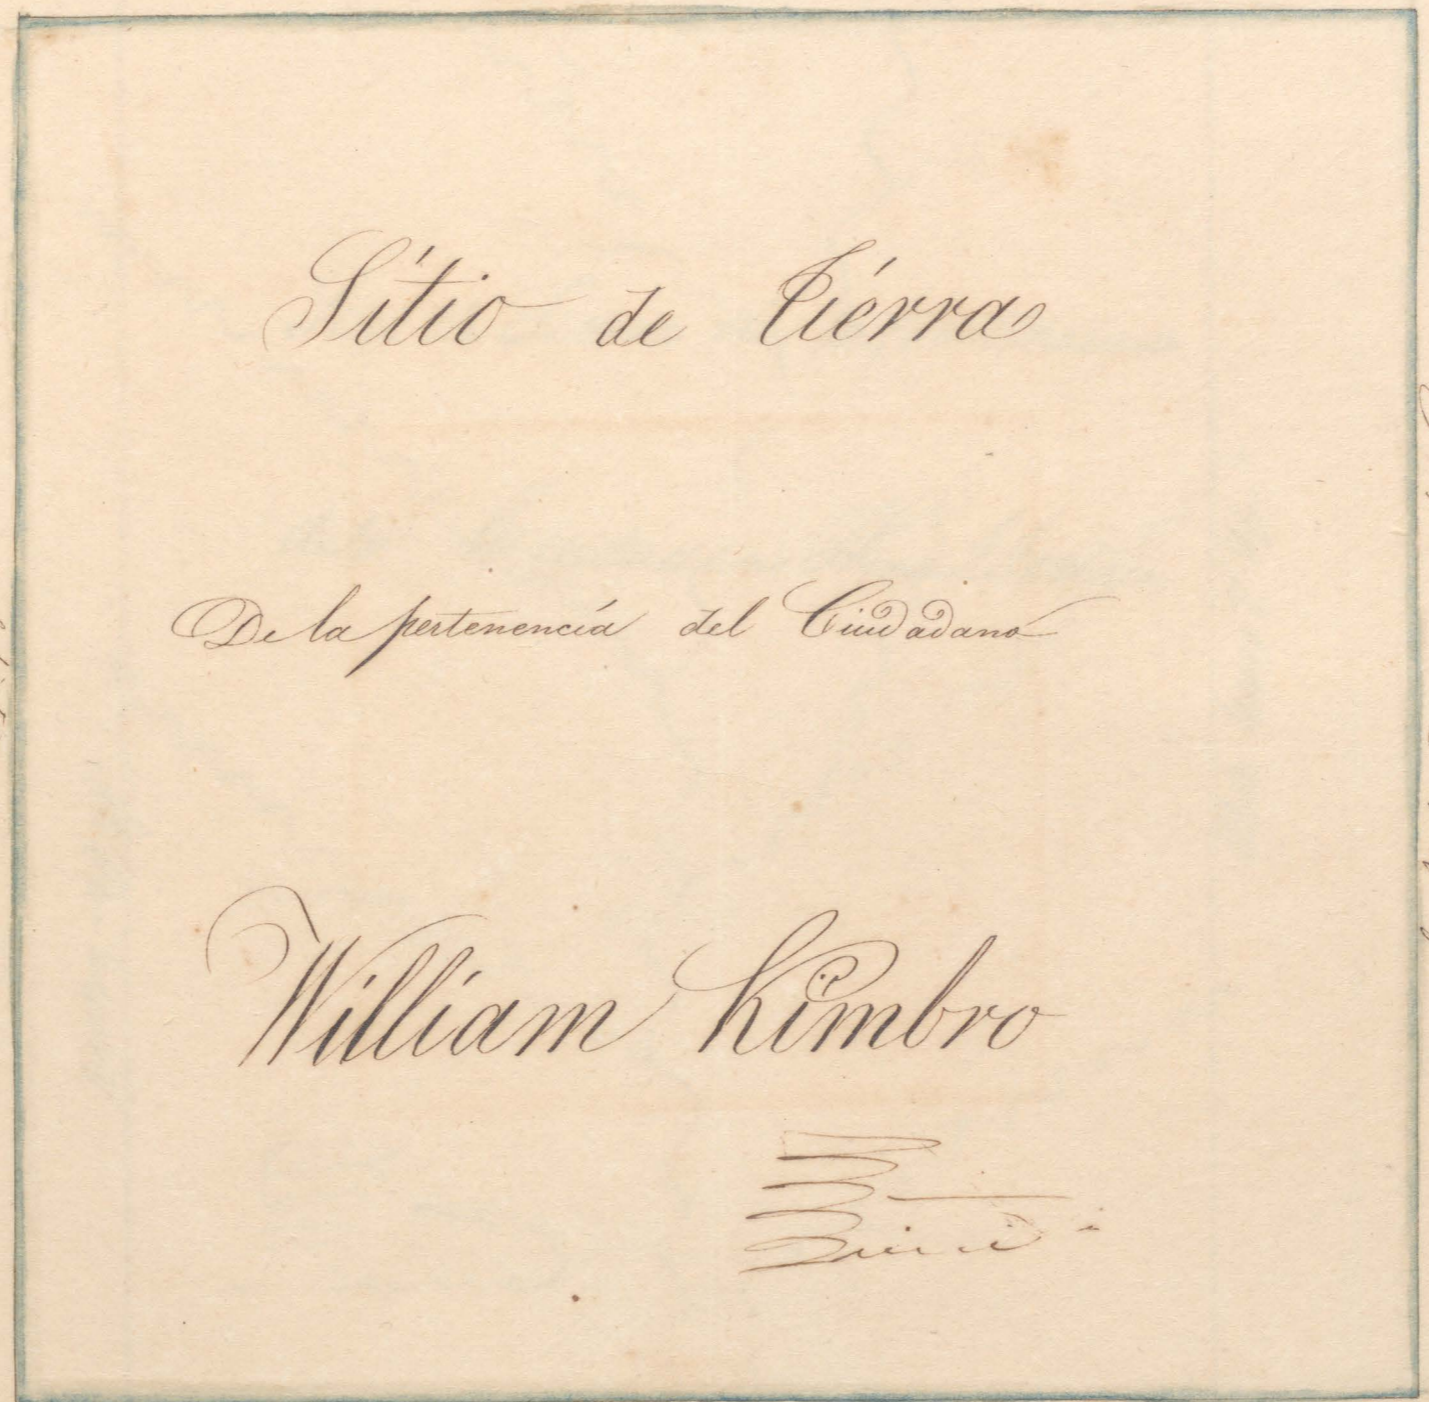 Sítio de Tiérra
De la pertenencía del Ciudadano
William Kimbro